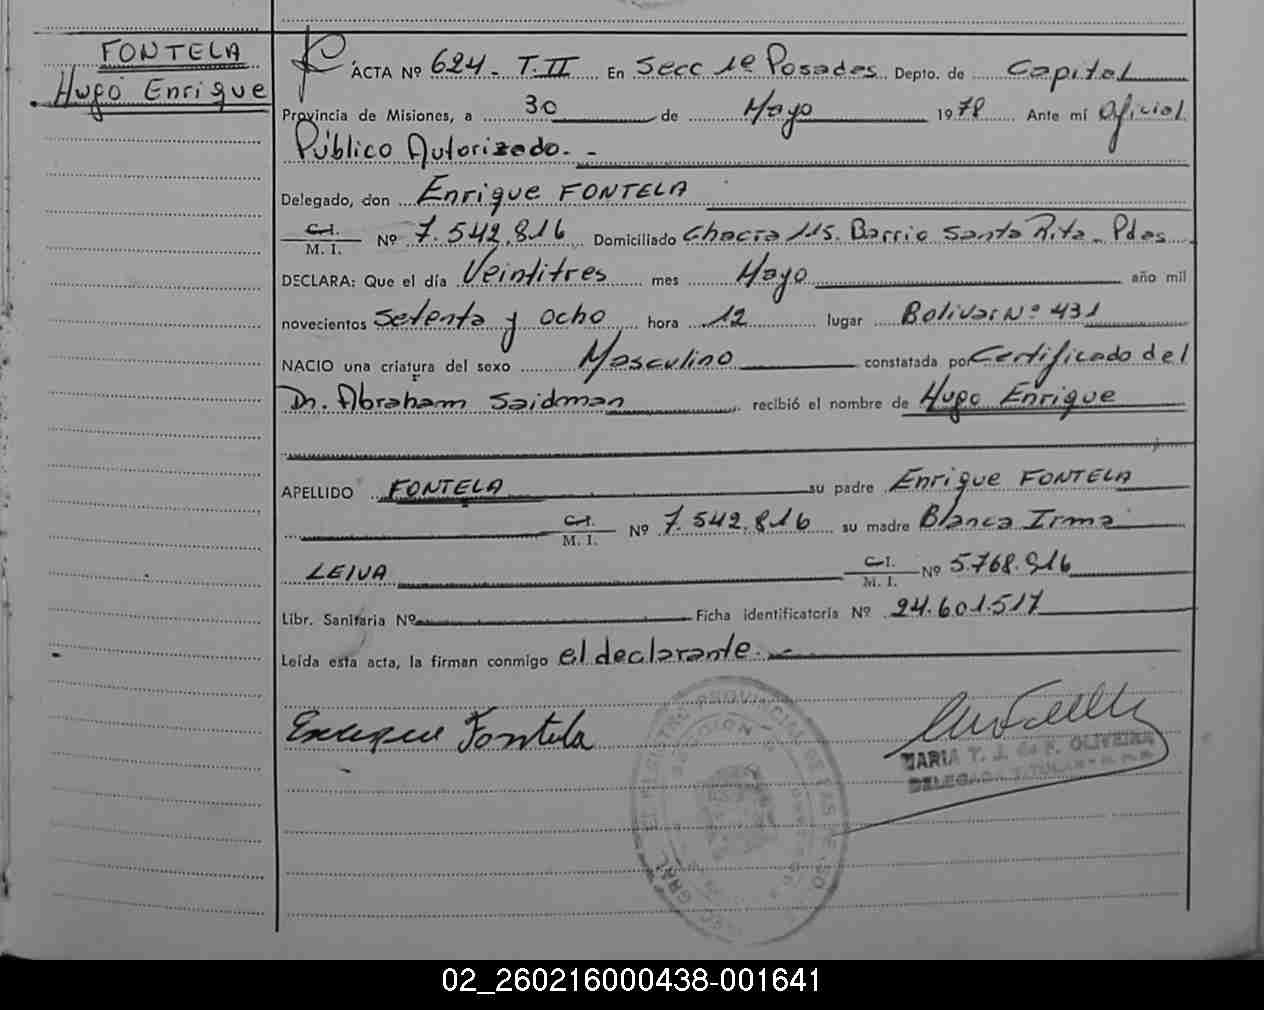 FONTELA
Hugo Enrique
ACTA Nº 624. T. II En Secc 1º Posadas Depto. de Capital
Provincia de Misiones, a 30 de Mayo 1978 Ante mí Oficial
Público Autorizado. -
Delegado, don Enrique FONTELA
C. I.
M. I. Nº 7.542.816 Domiciliado Chacra 115. Barrio Santa Rita - Pdas
DECLARA: Que el día Veintitres mes Mayo año mil
novecientos setenta y ocho hora 12 lugar Bolivar Nº 431
NACIO una criatura del sexo Masculino constatada por Certificado del
Dr. Abraham Saidman recibió el nombre de Hugo Enrique
APELLIDO FONTELA su padre Enrique FONTELA
C. I.
M. I. Nº 7.542.816 su madre Blanca Irma
LEIVA C. I.
M. I. Nº 5.768.916
Libr. Sanitaria Nº Ficha identificatoria Nº 24.601.517
Leída esta acta, la firman conmigo el declarante. -
Enrique Fontela
MARIA T. J. de F. OLIVEIRA
DELEGADA TITULAR
REGISTRO PROVINCIAL DE LAS PERSONAS
02_260216000438-001641